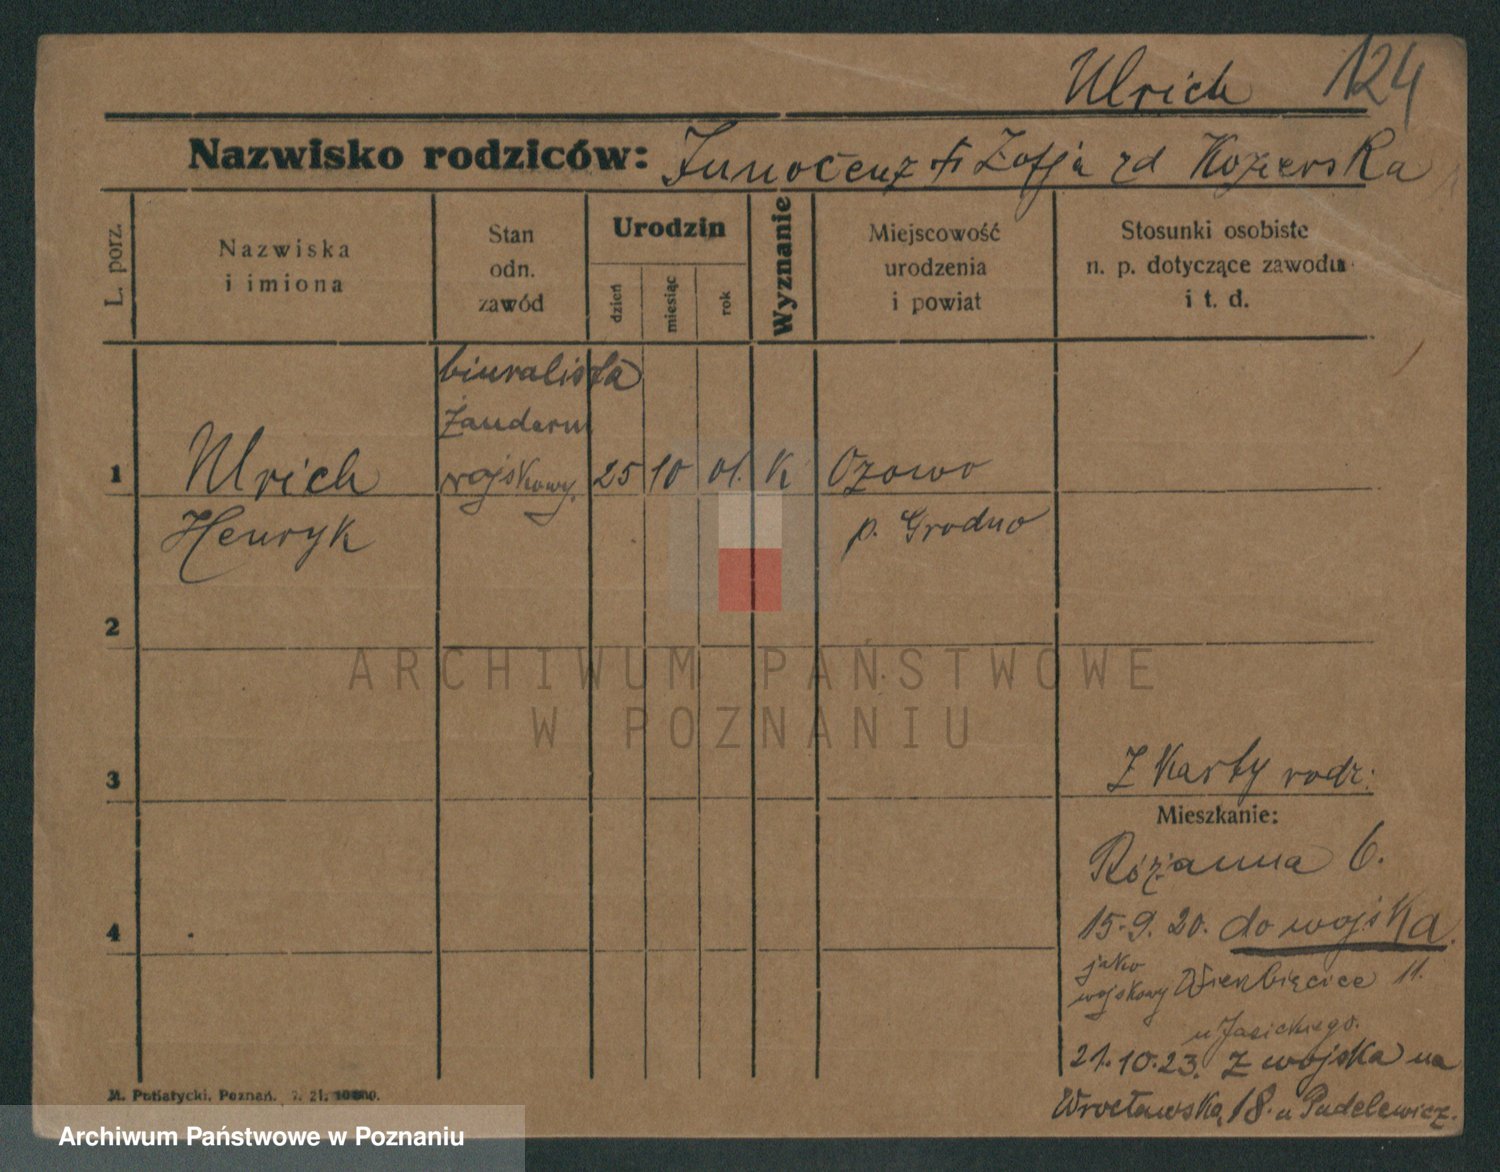 Ulrich 124
Nazwisko rodziców: Innocenz i Zofja zd Kozierska
L. porz.
Nazwiska
i imiona
Stan
odn.
zawód
Urodzin
dzień
miesiąc
rok
Wyznanie
Miejscowość
urodzenia
i powiat
Stosunki osobiste
n. p. dotyczące zawodu
i t. d.
biuralista
Żandarm
1 Ulrich wojskowy. 25 10 01. K Ozowo
Henryk p. Grodno
2
ARCHIWUM PAŃSTWOWE
W POZNANIU
3
Z Karty rodz:
Mieszkanie:
Różanna 6.
4
15.9.20. do wojska.
jako
wojskowy Wierzbięcice 11.
u Jasickiego.
21.10.23. Z wojska na
Wrocławska 18. u Pudelewicz.
M. Putiatycki, Poznań. 7. 21.
Archiwum Państwowe w Poznaniu